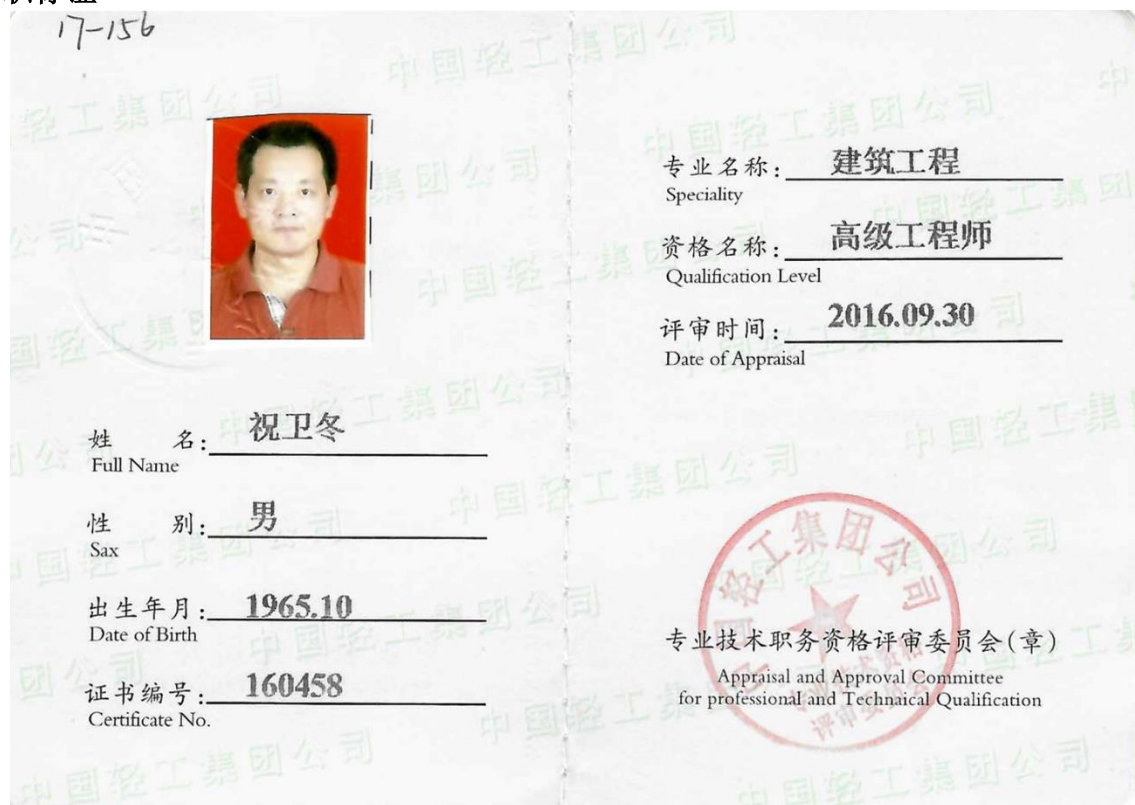 17-156
姓 名: 祝卫冬
Full Name
性 别: 男
Sax
出生年月: 1965.10
Date of Birth
证书编号: 160458
Certificate No.
专业名称: 建筑工程
Speciality
资格名称: 高级工程师
Qualification Level
评审时间: 2016.09.30
Date of Appraisal
中国轻工集团公司
专业技术职务资格评审委员会(章)
Appraisal and Approval Committee
for professional and Technaical Qualification
专业技术资格
评审委员会
中国轻工集团公司